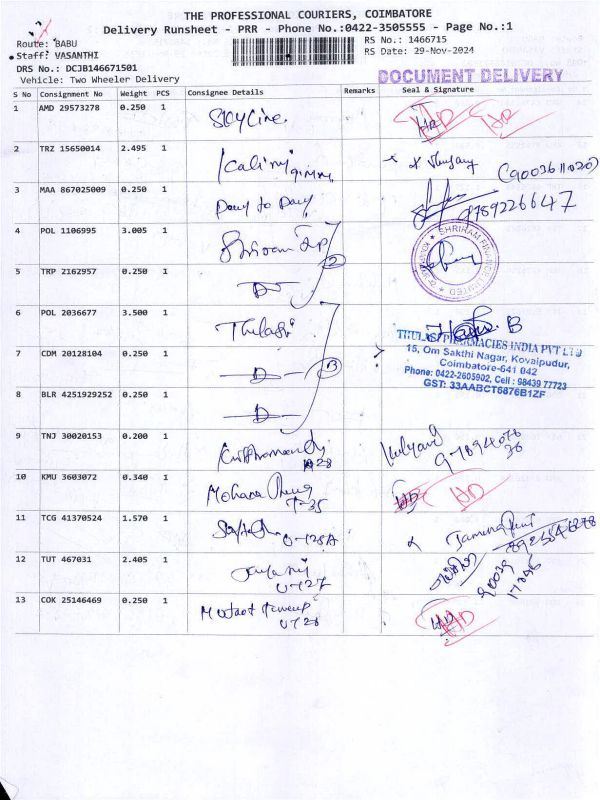 THE PROFESSIONAL COURIERS, COIMBATORE
Delivery Runsheet - PRR - Phone No.:0422-3505555 - Page No.:1
Route: BABU
Staff: VASANTHI
DRS No.: DCJB146671501
Vehicle: Two Wheeler Delivery
RS No.: 1466715
RS Date: 29-Nov-2024
DOCUMENT DELIVERY
S No Consignment No Weight PCS Consignee Details Remarks Seal & Signature
1 AMD 29573278 0.250 1 Skyline HD HD
2 TRZ 15650014 2.495 1
(9003611020)
3 MAA 867025009 0.250 1 Day to Day 9789226647
4 POL 1106995 3.005 1 Shriram
SHRIRAM FINANCE LIMITED
5 TRP 2162957 0.250 1 D 2
6 POL 2036677 3.500 1 Thulasi B
THULASI PHARMACIES INDIA PVT LTD
15, Om Sakthi Nagar, Kovaipudur,
Coimbatore-641 042
Phone: 0422-2605902, Cell : 98439 77723
GST: 33AABCT6876B1ZF
7 CDM 20128104 0.250 1 D 3
8 BLR 4251929252 0.250 1 D
9 TNJ 30020153 0.200 1
10 KMU 3603072 0.340 1 Mohana HD HD
T-35
11 TCG 41370524 1.570 1 U-128A
12 TUT 467031 2.405 1
U-127
13 COK 25146469 0.250 1 HD HD
U-128